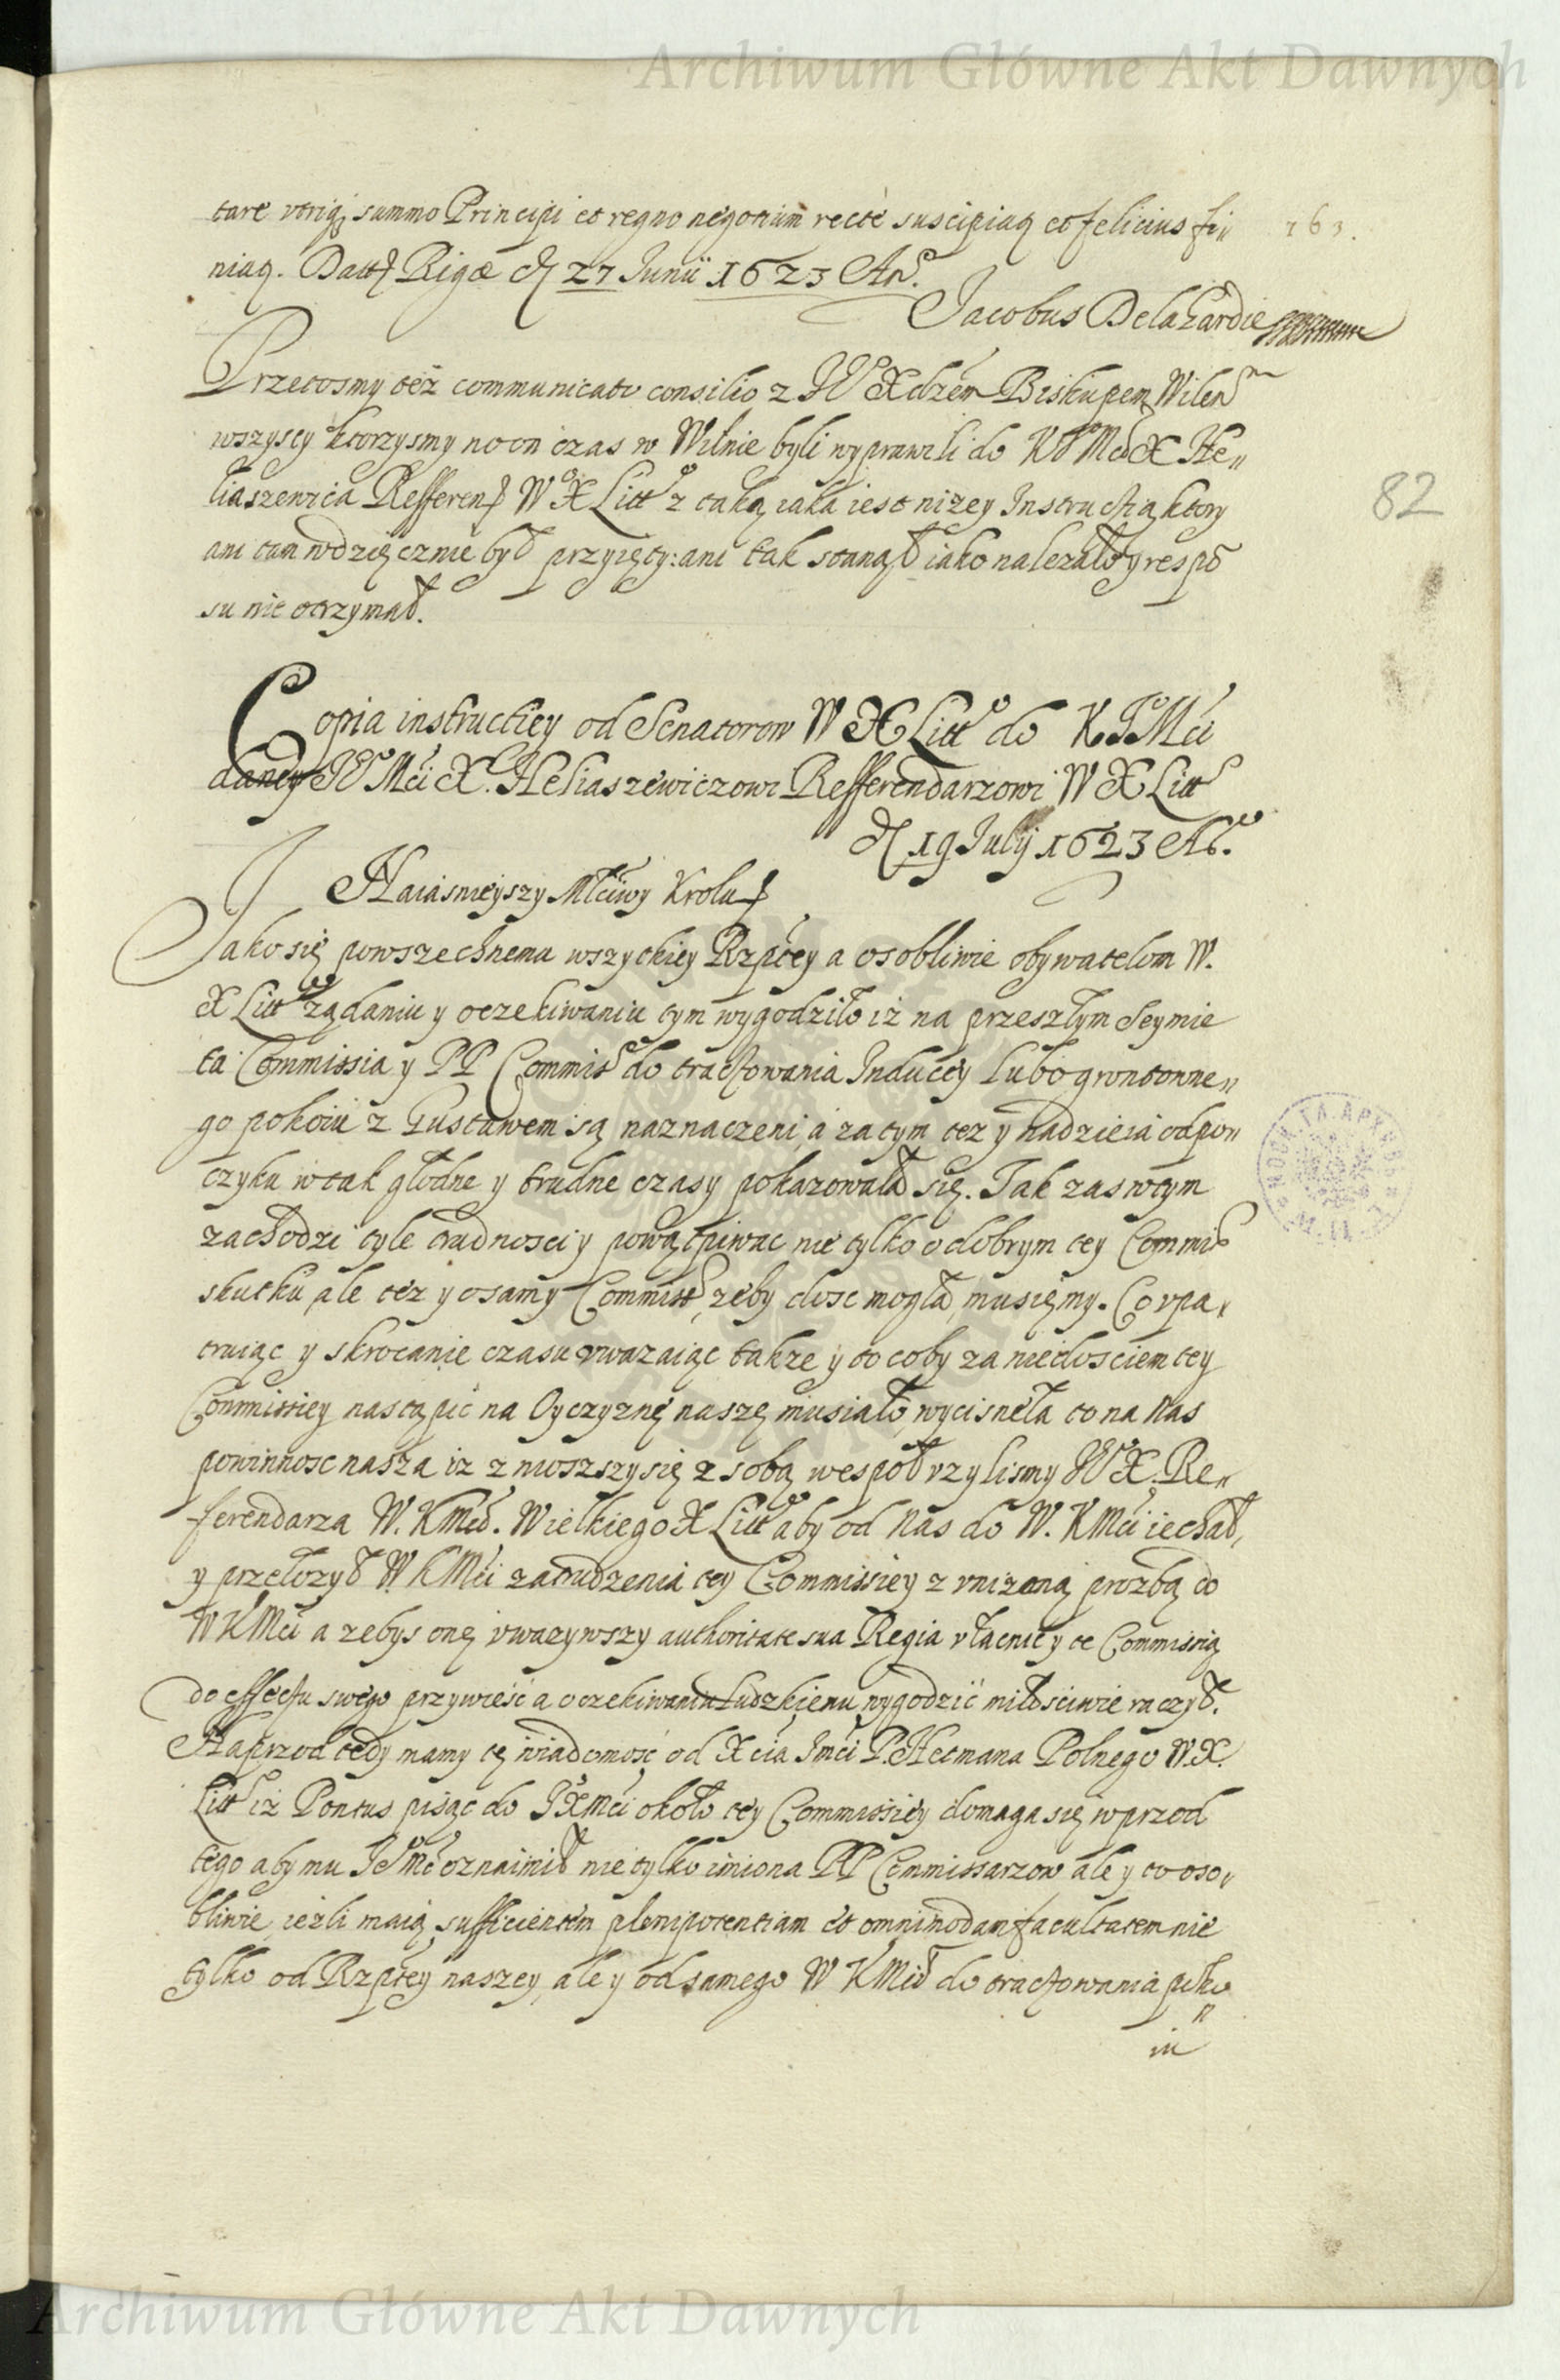 Archiwum Główne Akt Dawnych
tare vtriq; summo Principi et regno negotium recte suscipiaq et felicius fi„
163.
niaq. Datt Rigæ d 27 Junii 1623 An°.
Jacobus Delagardie
Przetosmy też communicato consilio z JE° Xdzem Biskupem Wilen
wszyscy ktorzysmy na on czas w Wilnie byli wyprawili do K° Mci X He„
liaszewica Refferen W X Litt° z taką iaka iest niżey Instructią ktory
82
ani tam wdzięcznie był przyięty: ani tak stanął iako należało y respō
su nie otrzymał.
Copia instructiey od Senatorow W X Litt° do K J Mci
daney JE° Mci X. Heliaszewiczowi Refferendarzowi W X Litt
d 19 Julij 1623 A°.
Naiasnieyszy Młciwy Krolu
Jako się powszechnemu wszytkiey Rzptey a osobliwie obywatelom W.
X Litt żądaniu y oczekiwaniu tym wygodziło iż na przeszłym Seymie
ta Commissia y PP Commiss do tractowania Induciy lubo gruntowne„
go pokoiu z Gustawem są naznaczeni, a zatym też y nadzieia odpo„
czyku w tak głodne y trudne czasy pokazowała się. Tak zas w tym
zachodzi tyle trudnosci y powątpiwac nie tylko o dobrym tey Commis
skutku ale też y o samy Commiss, żeby dosc mogła, musięmy. Co vpa„
truiąc y skrocanie czasu vważaiąc także y to coby za niedosciem tey
Commissiey nastąpić na Oyczyznę naszę musiało, wycisnęła to na Nas
powinnosc nasza iż znioszszy się z sobą wespoł vzylismy JE° X. Re„
ferendarza W. K Mci. Wielkiego X Litt aby od Nas do W. K Mci iechał,
y przełożył W. K Mci zatrudzenia tey Commissiey z vniżoną prozbą do
W K Mci a żebys onę vważywszy authoritate sua Regia vłacnił y tę Commissią
do effectu swego przywieść a oczekiwaniu ludzkiemu wygodzić miłosciwie raczył.
Naprzod tedy mamy tę wiadomość od Xcia Jmci P. Hetmana Polnego W. X.
Litt iż Pontus pisząc do J X Mci około tey Commissiey domaga się wprzod
tego aby mu Je° Mc oznaimił nie tylko imiona PP Commissarzow ale y to oso„
bliwie, ieżli maią sufficientem plenipotentiam et omnimodam facultatem nie
tylko od Rzptey naszey, ale y od samego W K Mci do tractowania poko„
iu
Archiwum Główne Akt Dawnych